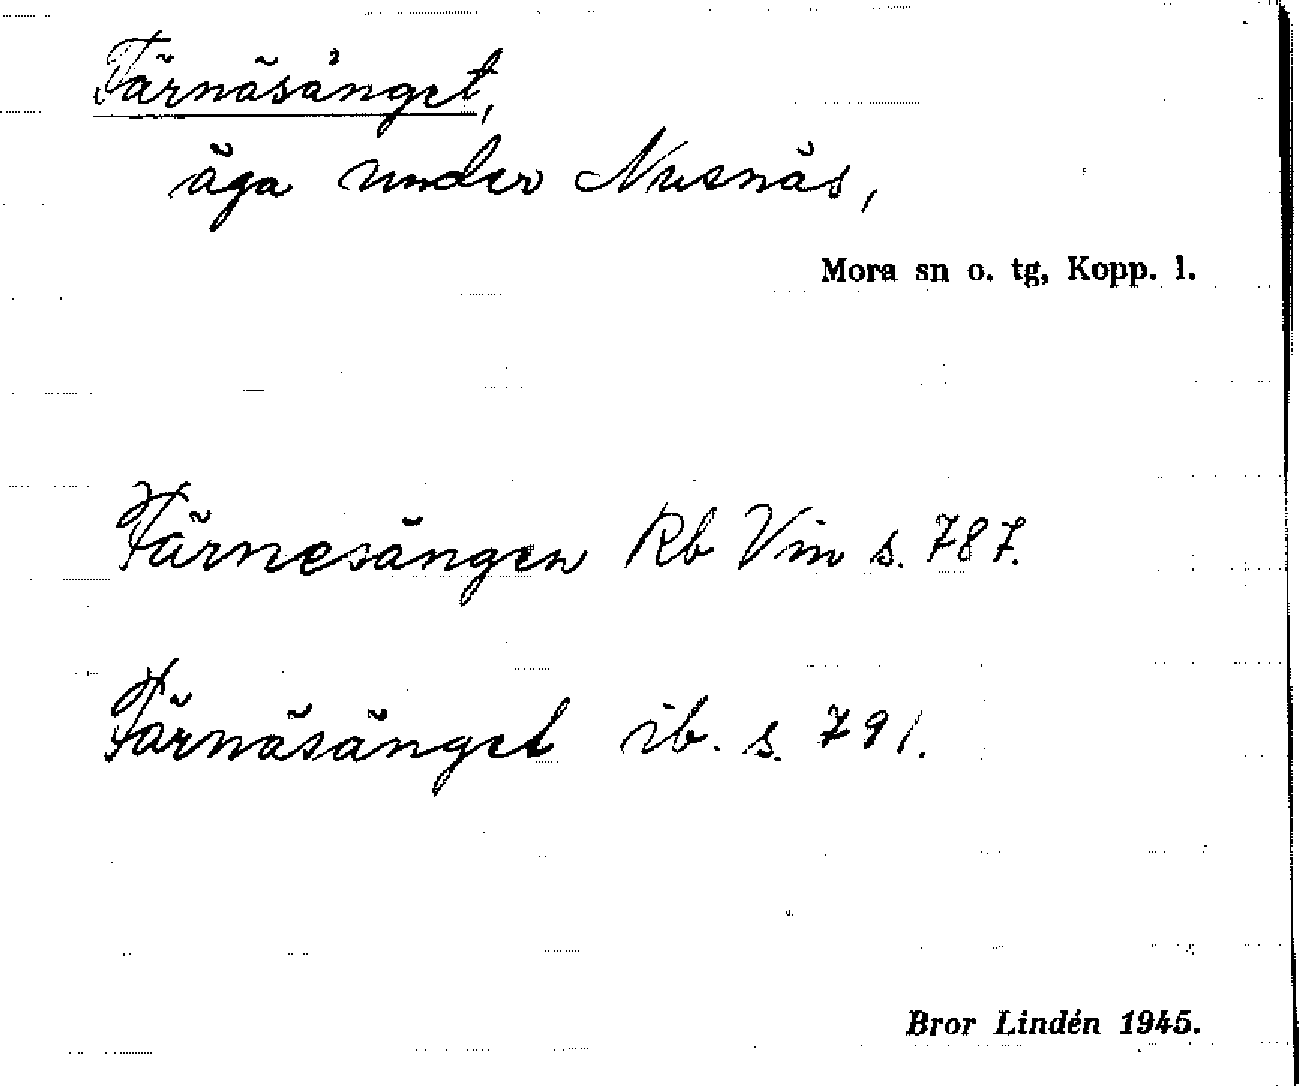 Färnäsänget,
äga under Nusnäs,
Mora sn o. tg, Kopp. l.
Färnesängen Rb Vin s. 787.
Färnäsänget ib. s. 791.
Bror Lindén 1945.